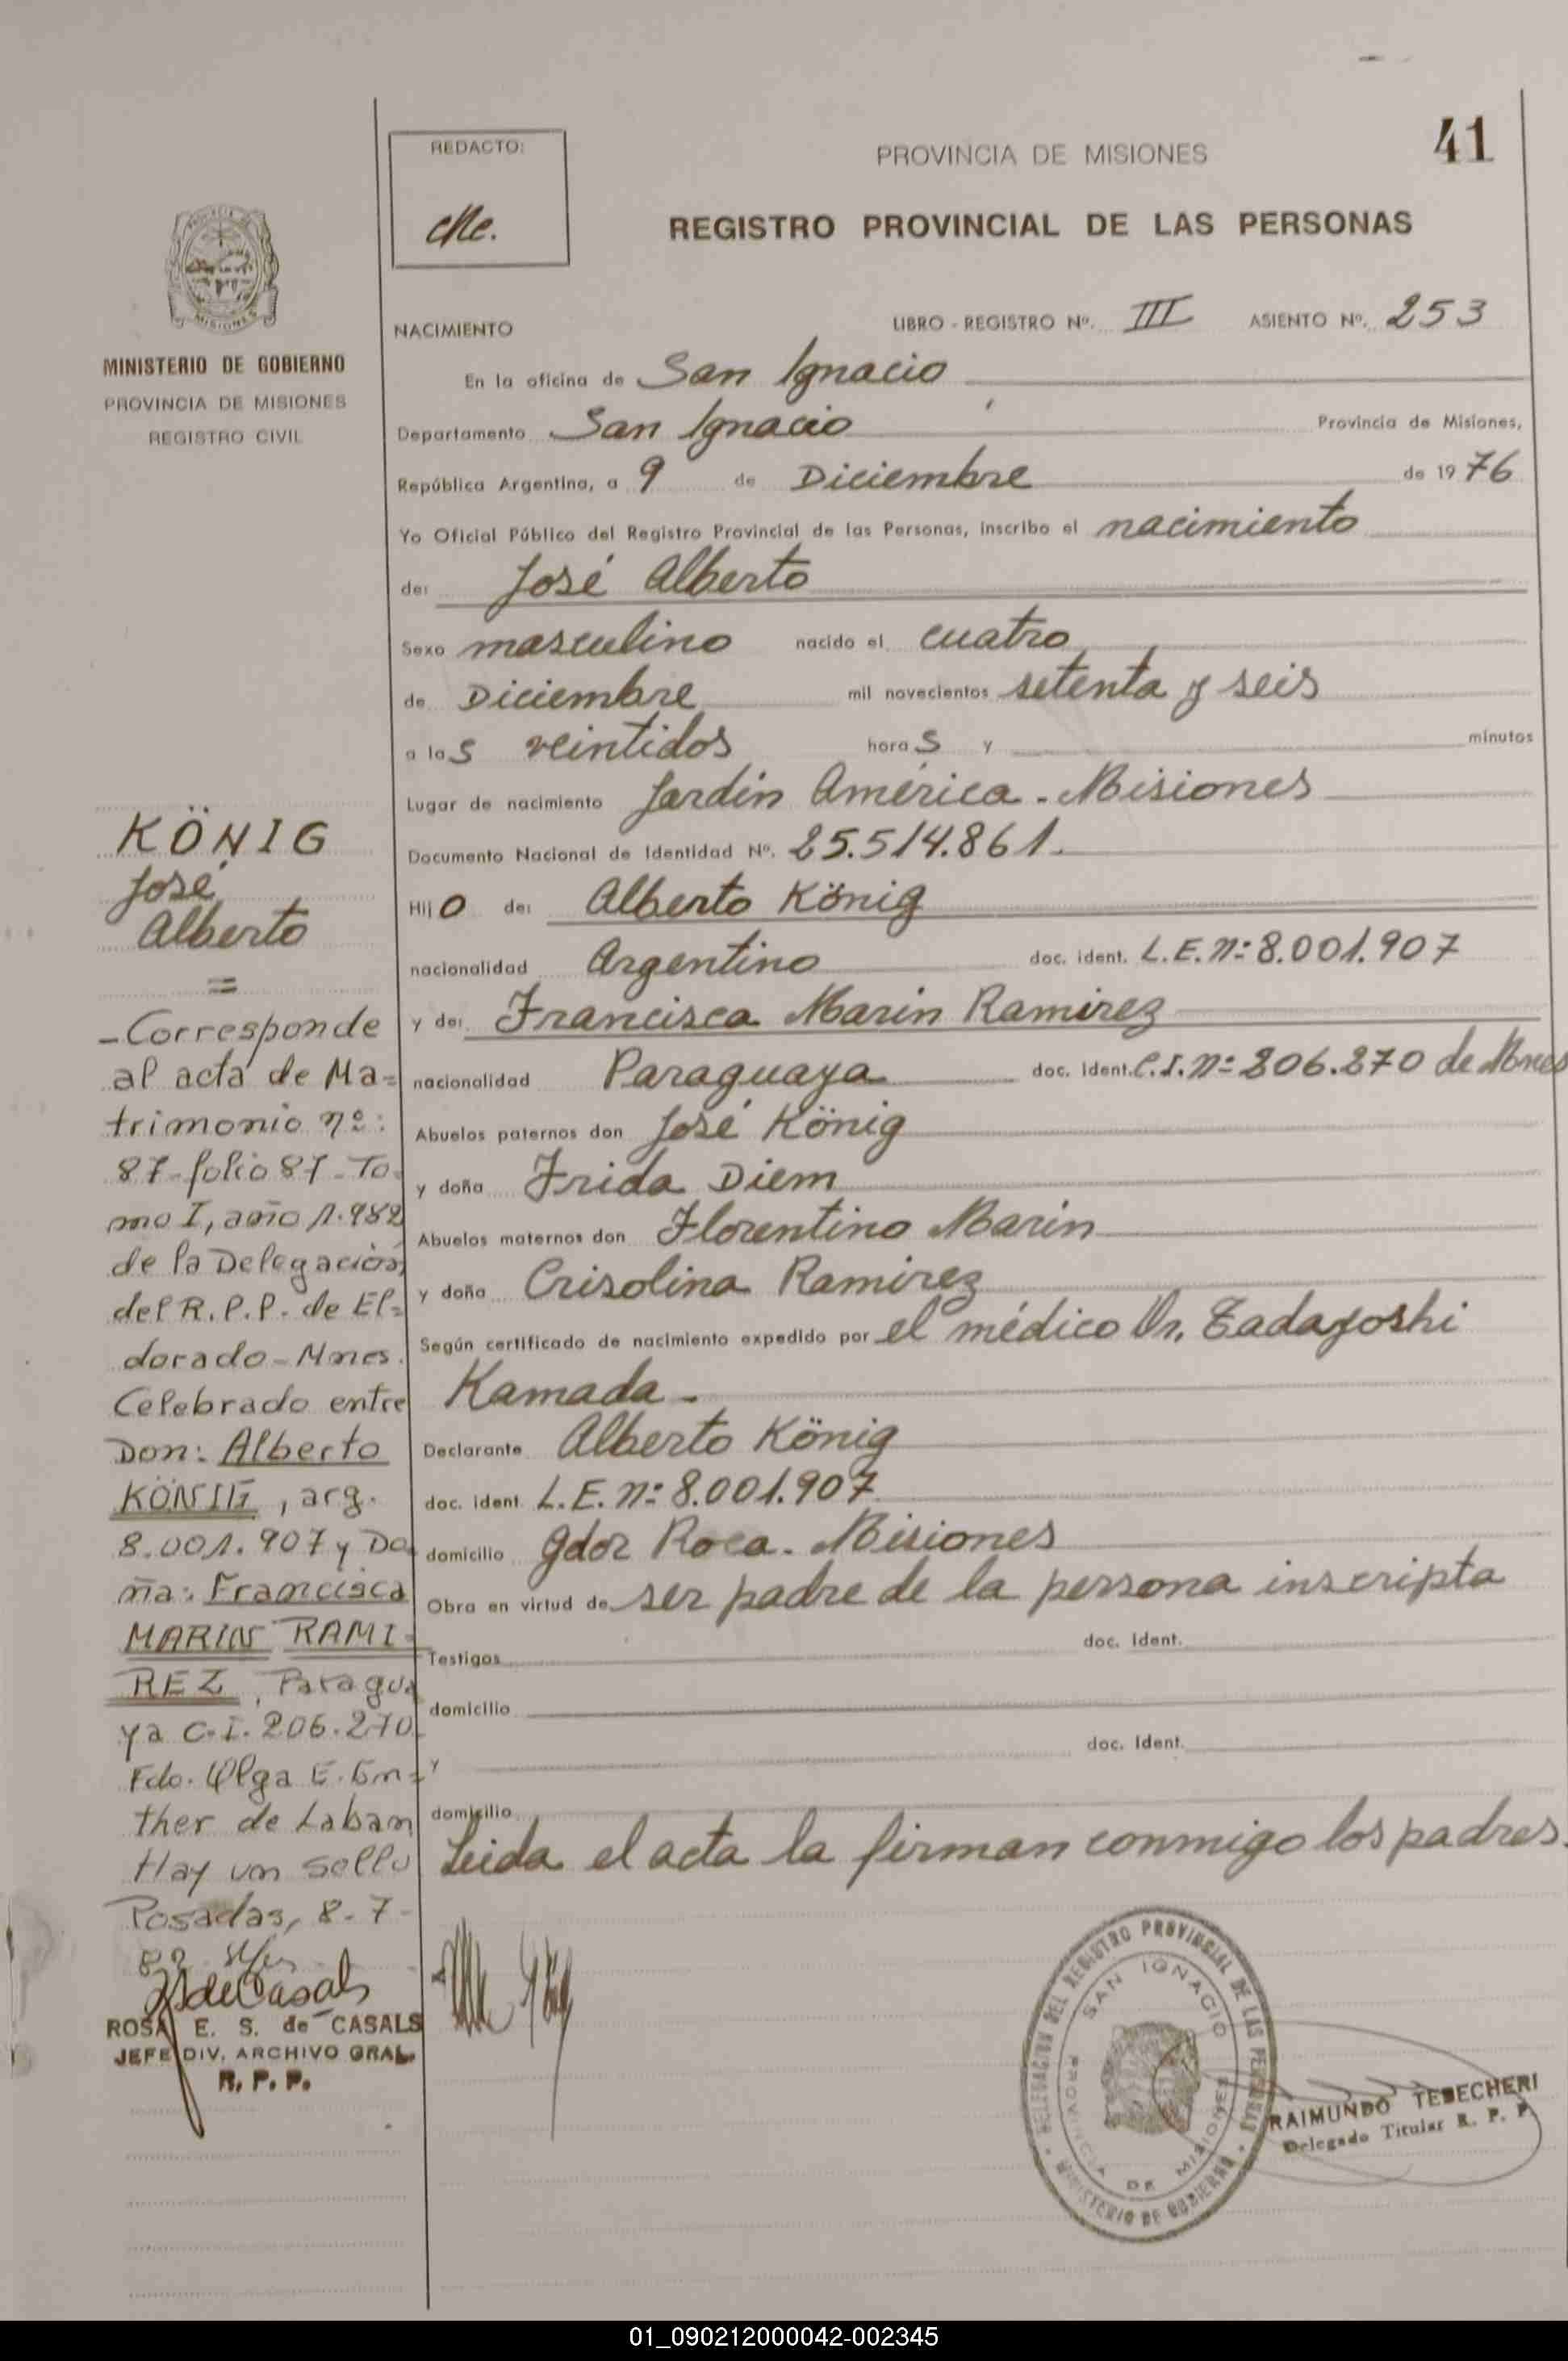 41
REDACTO:
PROVINCIA DE MISIONES
REGISTRO PROVINCIAL DE LAS PERSONAS
MISIONES
MINISTERIO DE GOBIERNO
PROVINCIA DE MISIONES
REGISTRO CIVIL
NACIMIENTO LIBRO - REGISTRO Nº. III ASIENTO Nº. 253
En la oficina de San Ignacio
Departamento San Ignacio Provincia de Misiones,
República Argentina, a 9 de Diciembre de 1976
Yo Oficial Público del Registro Provincial de las Personas, inscribo el nacimiento
de: José Alberto
Sexo masculino nacido el cuatro
de Diciembre mil novecientos setenta y seis
a las veintidos horas y minutos
Lugar de nacimiento Jardín América - Misiones
Documento Nacional de Identidad Nº. 25.514.861.
Hijo de: Alberto König
nacionalidad Argentino doc. ident. L.E. nº 8.001.907
y de: Francisca Marin Ramirez
nacionalidad Paraguaya doc. ident. C.I. nº 206.270 de Mnes
Abuelos paternos don José König
y doña Frida Diem
Abuelos maternos don Florentino Marin
y doña Crisolina Ramirez
Según certificado de nacimiento expedido por el médico Dr. Tadayoshi
Kamada -
Declarante Alberto König
doc. ident. L.E. nº 8.001.907
domicilio Gdor Roca - Misiones
Obra en virtud de ser padre de la persona inscripta
Testigos doc. ident.
domicilio
y doc. ident.
domicilio
Leida el acta la firman conmigo los padres.
KÖNIG
José
Alberto
=
- Corresponde
al acta de Ma=
trimonio nº:
87 - folio 87 - To
mo I, año 1.982
de la Delegación
del R.P.P. de El=
dorado - Mnes.
Celebrado entre
Don: Alberto
KÖNIG, arg.
8.001.907 y Do
ña: Francisca
MARIN RAMI=
REZ, Paragua
ya C.I. 206.270
Fdo. Olga E.
ther de Laban
Hay un sello
Posadas, 8-7-
82
ROSA E. S. de CASALS
JEFE DIV. ARCHIVO GRAL.
R. P. P.
DELEGACION DEL REGISTRO PROVINCIAL DE LAS PERSONAS
MINISTERIO DE GOBIERNO
SAN IGNACIO
PROVINCIA DE MISIONES
RAIMUNDO TEBECHERI
Delegado Titular R. P. P.
01_090212000042-002345